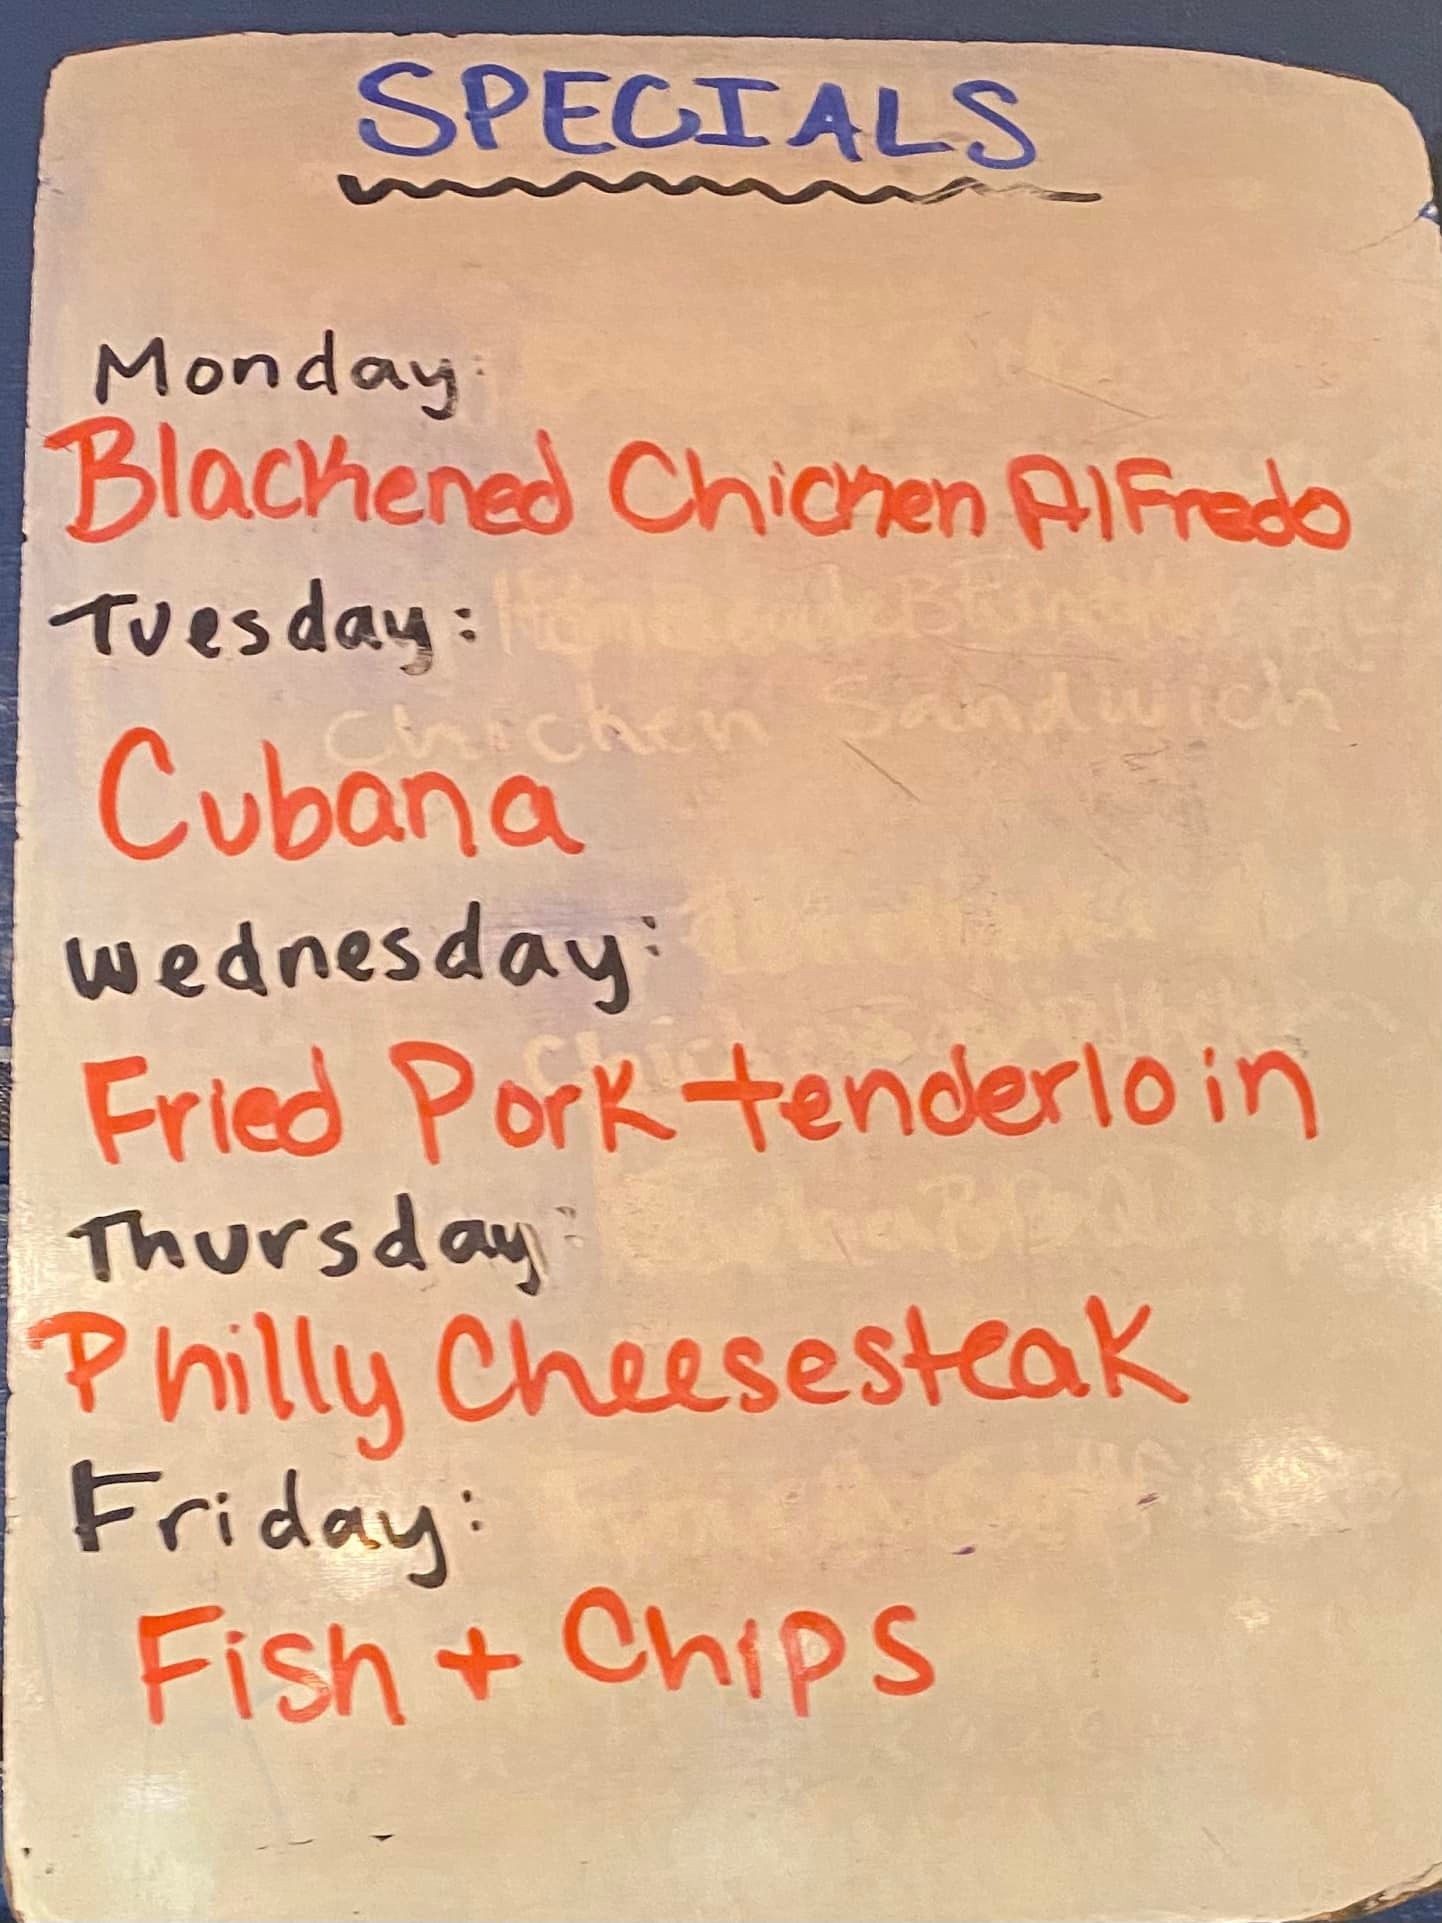 SPECIALS
Monday:
Blackened Chicken Alfredo
Tuesday:
Chicken Sandwich
Cubana
Wednesday:
Fried Pork tenderloin
Thursday:
Philly Cheesesteak
Friday:
Fish + Chips